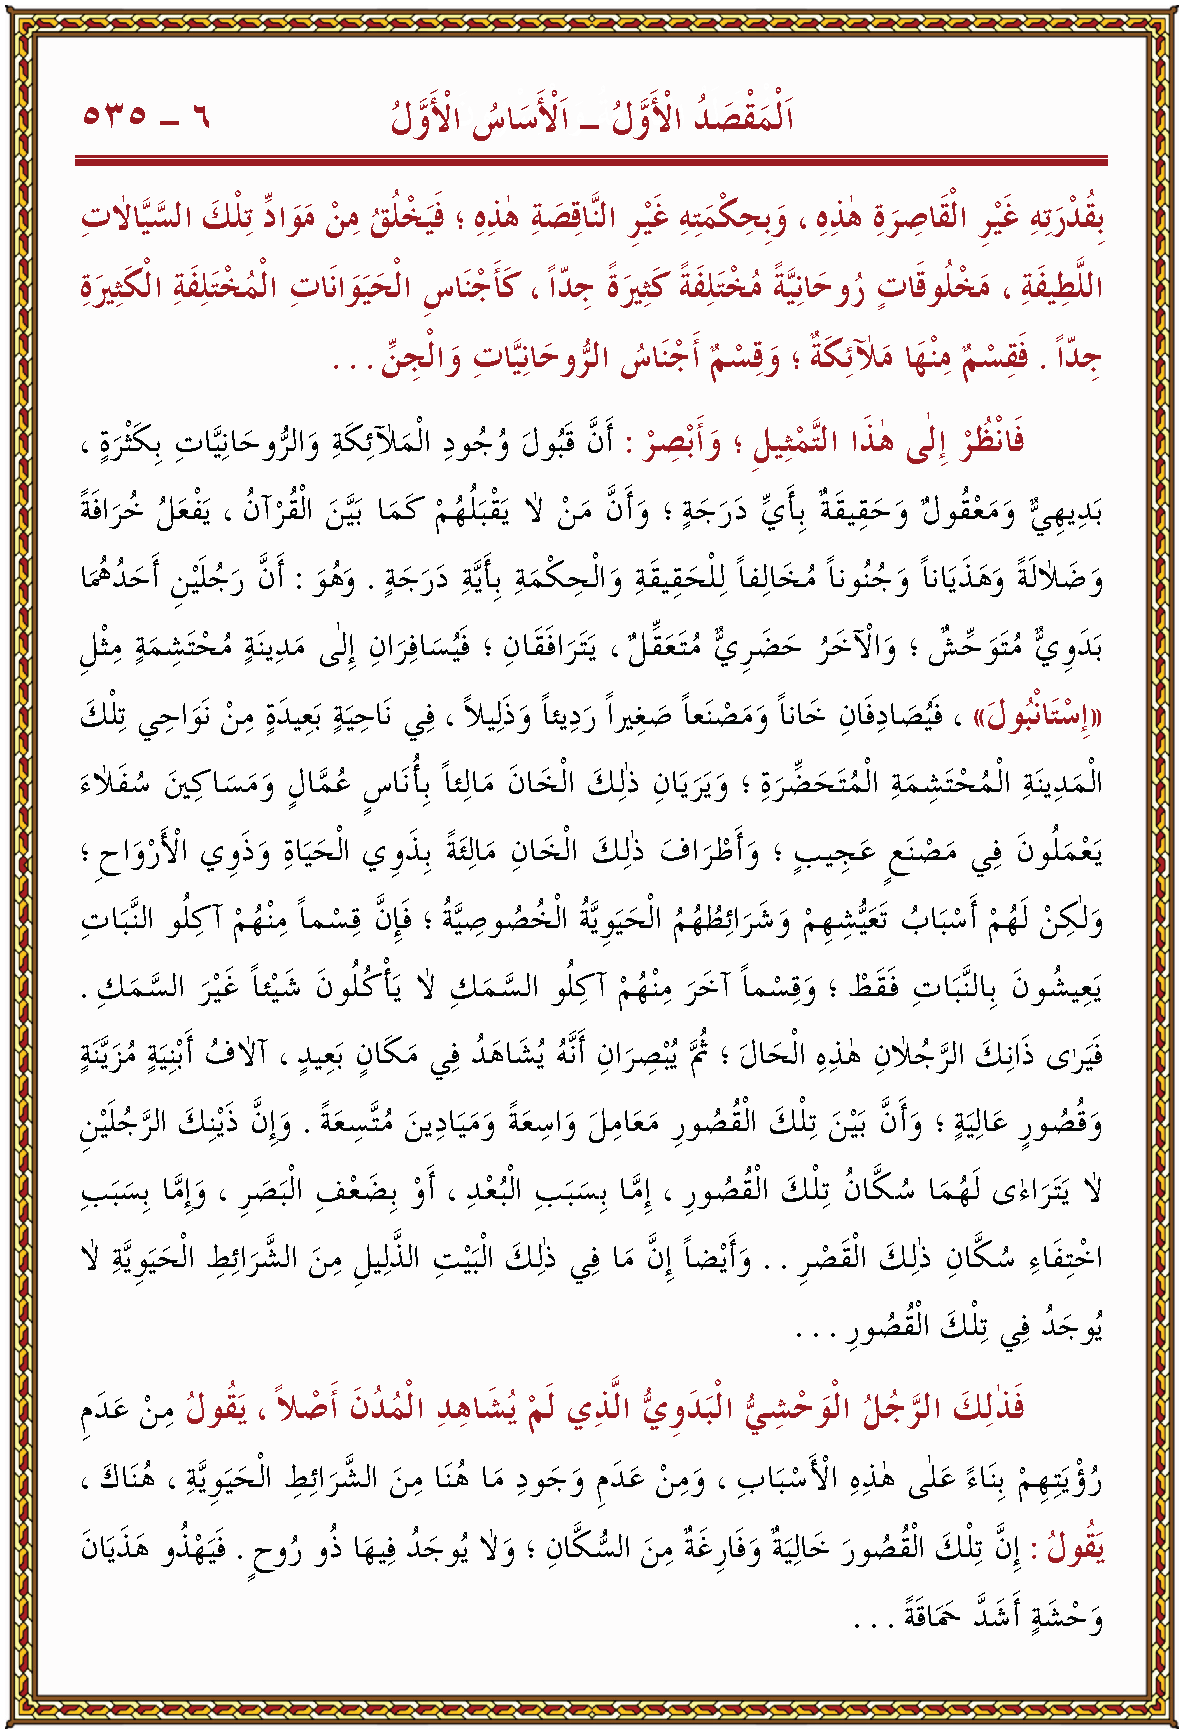 اَلْمَقْصَدُ الْأَوَّلُ ـ اَلْأَسَاسُ الْأَوَّلُ ٦ ـ ٥٣٥
بِقُدْرَتِهِ غَيْرِ الْقَاصِرَةِ هٰذِهِ ، وَبِحِكْمَتِهِ غَيْرِ النَّاقِصَةِ هٰذِهِ ؛ فَيَخْلُقُ مِنْ مَوَادِّ تِلْكَ السَّيَّالَاتِ
اللَّطِيفَةِ ، مَخْلُوقَاتٍ رُوحَانِيَّةً مُخْتَلِفَةً كَثِيرَةً جِدّاً ، كَأَجْنَاسِ الْحَيَوَانَاتِ الْمُخْتَلِفَةِ الْكَثِيرَةِ
جِدّاً . فَقِسْمٌ مِنْهَا مَلٰٓائِكَةٌ ؛ وَقِسْمٌ أَجْنَاسُ الرُّوحَانِيَّاتِ وَالْجِنِّ . . .
فَانْظُرْ إِلٰى هٰذَا التَّمْثِيلِ ؛ وَأَبْصِرْ : أَنَّ قُبُولَ وُجُودِ الْمَلٰٓائِكَةِ وَالرُّوحَانِيَّاتِ بِكَثْرَةٍ ،
بَدِيهِيٌّ وَمَعْقُولٌ وَحَقِيقَةٌ بِأَيِّ دَرَجَةٍ ؛ وَأَنَّ مَنْ لَا يَقْبَلُهُمْ كَمَا بَيَّنَ الْقُرْآنُ ، يَفْعَلُ خُرَافَةً
وَضَلَالَةً وَهَذَيَاناً وَجُنُوناً مُخَالِفاً لِلْحَقِيقَةِ وَالْحِكْمَةِ بِأَيَّةِ دَرَجَةٍ . وَهُوَ : أَنَّ رَجُلَيْنِ أَحَدُهُمَا
بَدَوِيٌّ مُتَوَحِّشٌ ؛ وَالْآخَرُ حَضَرِيٌّ مُتَعَقِّلٌ ، يَتَرَافَقَانِ ؛ فَيُسَافِرَانِ إِلٰى مَدِينَةٍ مُحْتَشِمَةٍ مِثْلِ
«إِسْتَانْبُولَ» ، فَيُصَادِفَانِ خَاناً وَمَصْنَعاً صَغِيراً رَدِيئاً وَذَلِيلاً ، فِي نَاحِيَةٍ بَعِيدَةٍ مِنْ نَوَاحِي تِلْكَ
الْمَدِينَةِ الْمُحْتَشِمَةِ الْمُتَحَضِّرَةِ ؛ وَيَرَيَانِ ذٰلِكَ الْخَانَ مَالِئاً بِأُنَاسٍ عُمَّالٍ وَمَسَاكِينَ سُفَلَاءَ
يَعْمَلُونَ فِي مَصْنَعٍ عَجِيبٍ ؛ وَأَطْرَافَ ذٰلِكَ الْخَانِ مَالِئَةً بِذَوِي الْحَيَاةِ وَذَوِي الْأَرْوَاحِ ؛
وَلٰكِنْ لَهُمْ أَسْبَابُ تَعَيُّشِهِمْ وَشَرَائِطُهُمُ الْحَيَوِيَّةُ الْخُصُوصِيَّةُ ؛ فَإِنَّ قِسْماً مِنْهُمْ آكِلُو النَّبَاتِ
يَعِيشُونَ بِالنَّبَاتِ فَقَطْ ؛ وَقِسْماً آخَرَ مِنْهُمْ آكِلُو السَّمَكِ لَا يَأْكُلُونَ شَيْئاً غَيْرَ السَّمَكِ .
فَيَرٰى ذَانِكَ الرَّجُلَانِ هٰذِهِ الْحَالَ ؛ ثُمَّ يُبْصِرَانِ أَنَّهُ يُشَاهَدُ فِي مَكَانٍ بَعِيدٍ ، آلَافُ أَبْنِيَةٍ مُزَيَّنَةٍ
وَقُصُورٍ عَالِيَةٍ ؛ وَأَنَّ بَيْنَ تِلْكَ الْقُصُورِ مَعَامِلَ وَاسِعَةً وَمَيَادِينَ مُتَّسِعَةً . وَإِنَّ ذَيْنِكَ الرَّجُلَيْنِ
لَا يَتَرَاءٰى لَهُمَا سُكَّانُ تِلْكَ الْقُصُورِ ، إِمَّا بِسَبَبِ الْبُعْدِ ، أَوْ بِضَعْفِ الْبَصَرِ ، وَإِمَّا بِسَبَبِ
اخْتِفَاءِ سُكَّانِ ذٰلِكَ الْقَصْرِ . . وَأَيْضاً إِنَّ مَا فِي ذٰلِكَ الْبَيْتِ الذَّلِيلِ مِنَ الشَّرَائِطِ الْحَيَوِيَّةِ لَا
يُوجَدُ فِي تِلْكَ الْقُصُورِ . . .
فَذٰلِكَ الرَّجُلُ الْوَحْشِيُّ الْبَدَوِيُّ الَّذِي لَمْ يُشَاهِدِ الْمُدُنَ أَصْلاً ، يَقُولُ مِنْ عَدَمِ
رُؤْيَتِهِمْ بِنَاءً عَلٰى هٰذِهِ الْأَسْبَابِ ، وَمِنْ عَدَمِ وَجُودِ مَا هُنَا مِنَ الشَّرَائِطِ الْحَيَوِيَّةِ ، هُنَاكَ ،
يَقُولُ : إِنَّ تِلْكَ الْقُصُورَ خَالِيَةٌ وَفَارِغَةٌ مِنَ السُّكَّانِ ؛ وَلَا يُوجَدُ فِيهَا ذُو رُوحٍ . فَيَهْذُو هَذَيَانَ
وَحْشَةٍ أَشَدَّ حَمَاقَةً . . .